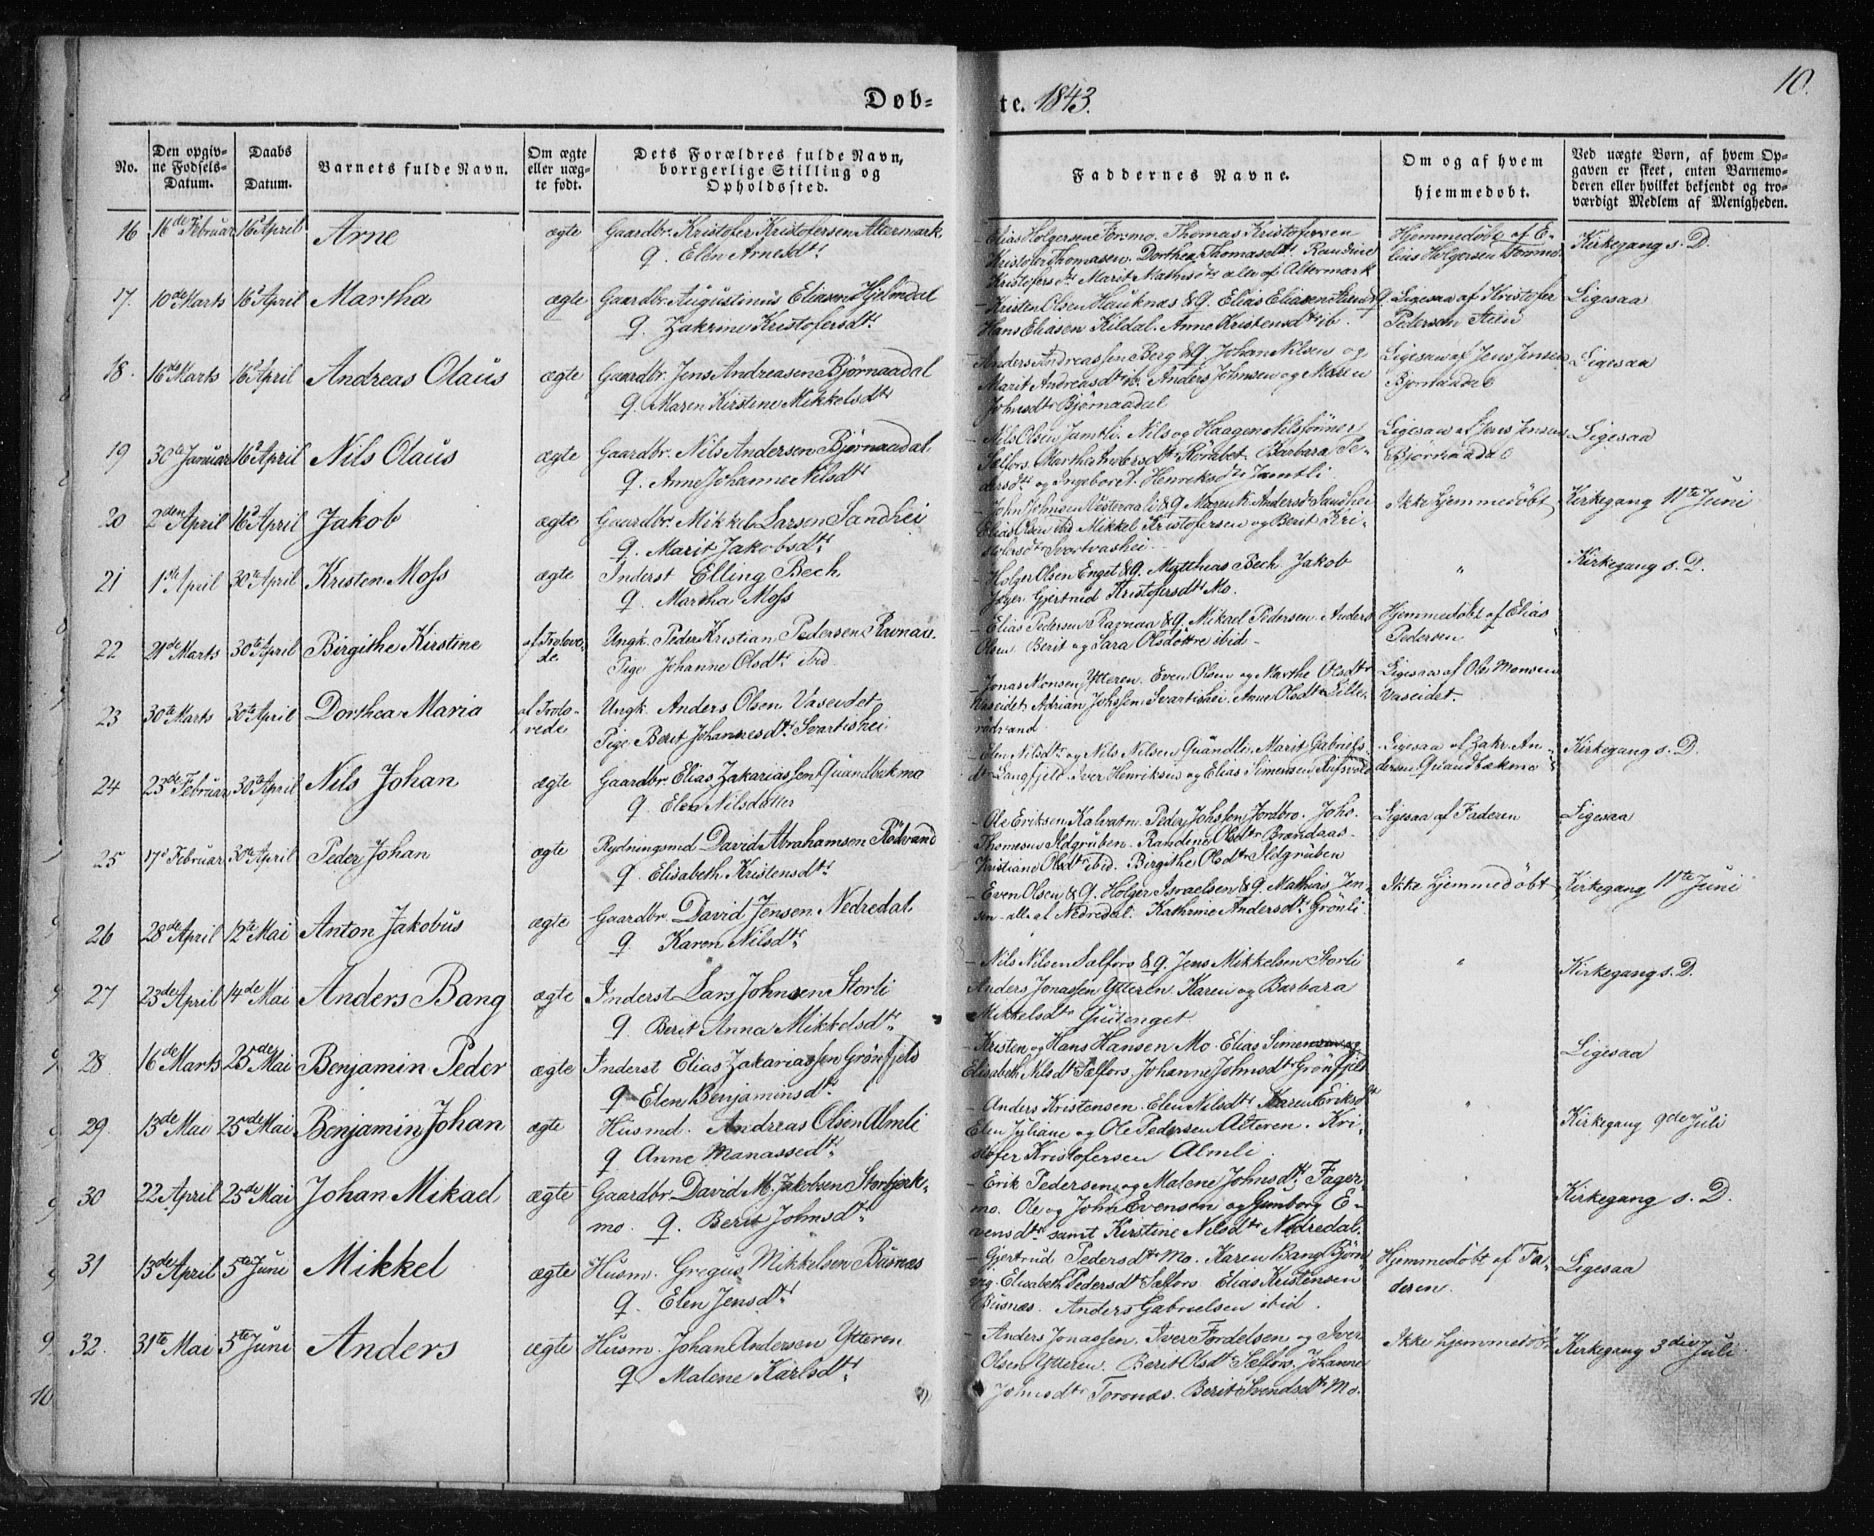 10.
Døb- te. 1843.
No.
Den opgiv-
ne Fødsels-
Datum.
Daabs
Datum.
Barnets fulde Navn.
Om ægte
eller uæg-
te født.
Dets Forældres fulde Navn,
borgerlige Stilling og
Opholdssted.
Faddernes Navne.
Om og af hvem
hjemmedøbt.
Ved uægte Børn, af hvem Op-
gaven er skeet, enten Barnemo-
deren eller hvilket bekjendt og tro-
værdigt Medlem af Menigheden.
16 16de Februar 16d April Arne ægte Gaardbr. Kristofer Kristofersen Altermark
q. Elen Arnesdtr
- Elias Holgersen Formo. Thomas Kristofersen
Kristofer Thomasen. Dorthea Thomasdtr. Randine
Kristofersdtr Marit Mathisdtr alle af Altermark
Hjemmedøbt af E-
lias Holgersen Formo
Kirkegang s. D.
17. 10de Marts 16d April Martha ægte Gaardbr. Augustinus Eliasen Hjelmdal
q. Zakrine Kristofersdtr
- Kristen Olsen Hauknas & q. Elias Eliasen
Hans Eliasen Kildal. Anne Kristensdtr ib.
Ligesaa af Kristofer
Pedersen Steen
Ligesaa
18. 16de Marts 16d April Andreas Olaus ægte Gaardbr. Jens Andreasen Bjørnaadal
q. Maren Kirstine Mikkelsdtr
- Anders Andreassen Berg & q. Johan Nilsen og
Marit Andreasdtr ib. Anders Johnsen og Maren
Johnsdtr Bjørnaadal
Ligesaa af Jens Jensen
Bjørnaadal
Ligesaa
19 30te Januar 16d April Nils Olaus ægte Gaardbr. Nils Andersen Bjørnaadal
q. Anne Johanne Nilsdtr
- Nils Olsen Jamtli. Nils og Haagen Nilssønner
Sælfors. Marthe Andersdtr Rørabet. Barbara Pe-
dersdtr og Ingeborg A. Henriksdtr Jamtli
Ligesaa af Jens Jensen
Bjørnaadal
Ligesaa
20 2den April 16d April Jakob ægte Gaardbr. Mikkel Larsen Sandhei
q. Marit Jakobsdtr
- John Johnsen Nesteraali & q. Maren K. Andersdtr Sandhei
Elias Olsen ibid Mikkel Kristofersen og Berit Kri-
stofersdtr Svortvashei
Ikke hjemmedøbt
Kirkegang 11te Juni
21 1ste April 30te April Kristen Moss ægte Inderst Elling Bech
q. Martha Moss
- Holger Olsen Enget & q. Matthias Bech Jakob
Jeger. Gjertrud Kristofersdtr Mo.
"
Kirkegang s. D.
22 21de Marts 30te April Birgithe Kirstine af Trolove-
de
Ungk. Peder Kristian Pedersen Ravnaa.
Pige Johanne Olsdtr ibid
- Elias Pedersen Ravnaa & q. Mikael Pedersen. Anders
Olsen Berit og Sara Olsdøttre ibid -
Hjemmedøbt af Elias
Pedersen
23 30te Marts 30te April Dorthea Maria af Trolo-
vede
Ungk. Anders Olsen Vaseidet
Pige Berit Johannesdtr Svartishei
- Jonas Monsen Ytteren. Even Olsen og Marthe Olsdtr
Vaseidet Adrian Johssen Svartishei. Anne Olsdtr Lille-
rødvand
Ligesaa af Ole Monsen
Vaseidet.
24 23de Februar 30te April Nils Johan ægte Gaardbr. Elias Zakariassen Quandbækmo
q. Elen Nilsdatter
- Elen Nilsdtr og Nils Nilsen Quandli. Marit Gabriels-
dtr Langfjeld. Iver Henriksen og Elias Simensen Rufsvold
Ligesaa af Zakr. An-
dersen Quandbækmo
Kirkegang s. D.
25 17d Februar 30te April Peder Johan ægte Rydningsmd David Abrahamsen Rødvand
q. Elisabeth Kristensdtr
- Ole Eriksen Kalvatn. Peder Johssen Jordbro. Johs.
Thomesen Ildgruben. Randine Olsdtr Brandaas-
Kristiane Olsdtr ibid. Birgithe Olsdtr Ildgruben
Ligesaa af Faderen
Ligesaa
26 28de April 12te Mai Anton Jakobus ægte Gaardbr. David Jensen Nedredal
q. Karen Nilsdtr
- Even Olsen & q. Holger Israelsen & q. Mathias Jen-
sen - alle af Nedredal. Kathrine Andersdtr Grønli
Ikke hjemmedøbt
Kirkegang 11te Juni
27 23de April 14de Mai Anders Bang ægte Inderst Lars Johnsen Storli
q Berit Anna Mikkelsdtr
- Nils Nilsen Sælfors & q. Jens Mikkelsen Storli
Anders Jonassen Ytteren. Karen og Barbara
Mikkelsdtr
"
Kirkegang s. D.
28. 16de Marts 25de Mai Benjamin Peder ægte Inderst Elias Zakariassen Grønfjeld
q Elen Benjaminsdtr
- Kristen og Hans Hansen Mo. Elias Simensen og
Elisabeth Nilsdtr Sælfors. Johanne Johnsdtr Grønfjeld
"
Ligesaa
29. 13de Mai 25de Mai Benjamin Johan ægte Husmd. Andreas Olsen Almli
q Anne Manassedtr
- Anders Kristensen. Elen Nilsdtr Karen Eriksdtr
Elen Juliane og Ole Pedersen Alteren. Kri-
stofer Kristofersen Almli
"
Kirkegang 9de Juli
30 22 April 25de Mai Johan Mikael ægte Gaardbr. David M. Jakobsen Storbjerk-
mo. q. Berit Johnsdtr
- Erik Pedersen og Malene Johnsdtr Fager-
mo. Ole og John Evensen og Gunborg E-
vensdtr samt Kirstine Nilsdtr Nedredal.
"
Kirkegang s. D.
31 13de April 5te Juni Mikkel ægte Husm. Gregus Mikkelsen Busnæs
q. Elen Jensdtr
- Gjertrud Pedersdtr Mo. Karen Bang Bjørn
Elisabeth Pedersdtr Sælfors. Elias Kristensen
Busnæs. Anders Gabrielsen ibid.
Hjemmedøbt af Fa-
deren.
Ligesaa
32. 31te Mai 5te Juni Anders ægte Husm. Johan Andersen Ytteren
q Malene Karlsdtr
- Anders Jonassen. Iver Fordelsen og Iver
Olsen Ytteren. Berit Olsdtr Sælfors. Johanne
Johnsdtr Toronæs. Berit Svendsdtr Mo.
Ikke hjemmedøbt
Kirkegang 3die Juli